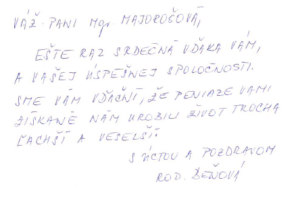 VÁŽ. PANI Mgr. MAJOROŠOVÁ,
EŠTE RAZ SRDEČNÁ VĎAKA VÁM,
A VAŠEJ ÚSPEŠNEJ SPOLOČNOSTI.
SME VÁM VĎAČNÍ, ŽE PENIAZE VAMI
ZÍSKANÉ NÁM UROBILI ŽIVOT TROCHA
ĽACHŠÍ A VESELŠÍ.
S ÚCTOU A POZDRAVOM
ROD. BEŇOVÁ